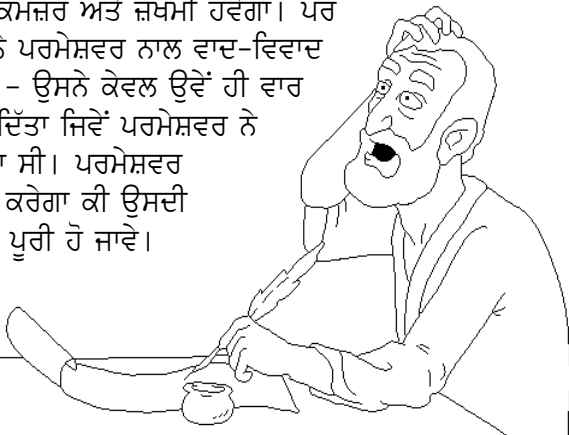 ਕਮਜ਼ੋਰ ਅਤੇ ਜ਼ਖਮੀ ਹੋਵੇਗਾ। ਪਰ
ਪਰਮੇਸ਼ਵਰ ਨਾਲ ਵਾਦ-ਵਿਵਾਦ
- ਉਸਨੇ ਕੇਵਲ ਉਵੇਂ ਹੀ ਵਾਰ
ਦਿੱਤਾ ਜਿਵੇਂ ਪਰਮੇਸ਼ਵਰ ਨੇ
ਸੀ। ਪਰਮੇਸ਼ਵਰ
ਕਰੇਗਾ ਕੀ ਉਸਦੀ
ਪੂਰੀ ਹੋ ਜਾਵੇ।